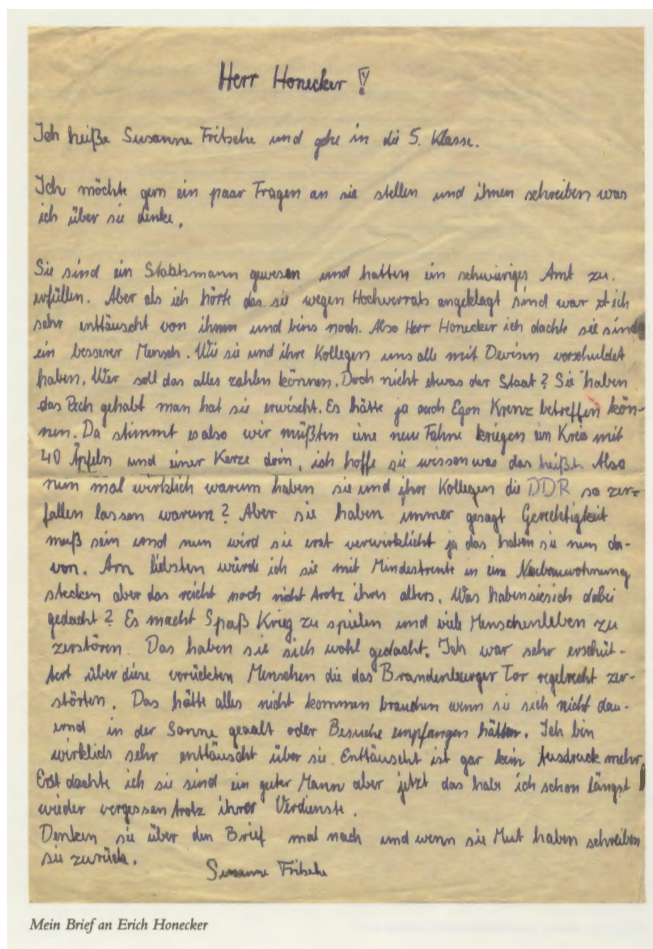 Herr Honecker !
Ich heiße Susanne Fritsche und gehe in die 5. Klasse.
Ich möchte gern ein paar Fragen an sie stellen und ihnen schreiben was
ich über sie denke.
Sie sind ein Staatsmann gewesen und hatten ein schwieriges Amt zu
erfüllen. Aber als ich hörte das sie wegen Hochverrats angeklagt sind war ich
sehr enttäuscht von ihnen und bins noch. Also Herr Honecker ich dachte sie sind
ein besserer Mensch. Wie sie und ihre Kollegen uns alle mit Devisen verschuldet
haben. Wer soll das alles zahlen können. Doch nicht etwas der Staat? Sie haben
das Pech gehabt man hat sie erwischt. Es hätte ja auch Egon Krenz betreffen kön-
nen. Da stimmt es also wir müßten eine neue Fahne kriegen ein Kreis mit
40 Äpfeln und einer Kerze drin, ich hoffe sie wissen was das heißt. Also
nun mal wirklich warum haben sie und ihre Kollegen die DDR so zer-
fallen lassen warum? Aber sie haben immer gesagt Gerechtigkeit
muß sein und nun wird sie erst verwirklicht ja das haben sie nun da-
von. Am liebsten würde ich sie mit Mindestrente in eine Neubauwohnung
stecken aber das reicht noch nicht trotz ihres alters. Was haben sie sich dabei
gedacht? Es macht Spaß Krieg zu spielen und viele Menschenleben zu
zerstören. Das haben sie sich wohl gedacht. Ich war sehr erschüt-
tert über diese verrückten Menschen die das Brandenburger Tor regelrecht zer-
störten. Das hätte alles nicht kommen brauchen wenn sie sich nicht dau-
ernd in der Sonne geaalt oder Besuche empfangen hätten. Ich bin
wirklich sehr enttäuscht über sie. Enttäuscht ist gar kein Ausdruck mehr.
Erst dachte ich sie sind ein guter Mann aber jetzt das habe ich schon längst
wieder vergessen trotz ihrer Verdienste.
Denken sie über den Brief mal nach und wenn sie Mut haben schreiben
sie zurück.
Susanne Fritsche
Mein Brief an Erich Honecker